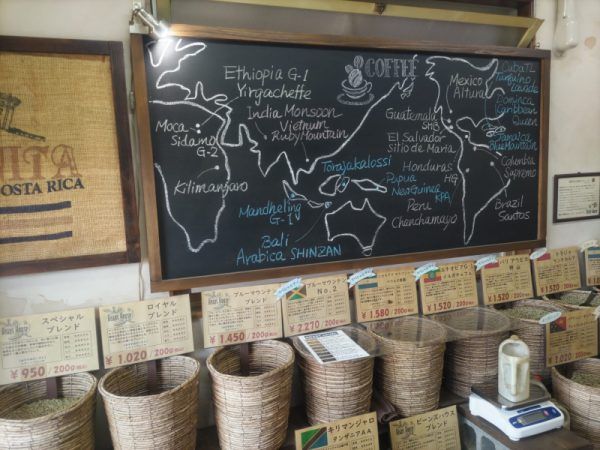 COFFEE
Ethiopia G-1
Yirgacheffe
Moca
Sidamo
G-2
Kilimanjaro
India Monsoon
Vietnum
Ruby Mountain
Torajakalossi
Mandheling
G-1
Bali
Arabica SHINZAN
Papua
New Guinea
KPA
Guatemala
SHB
El Salvador
Sitio de Maria
Honduras
HG
Peru
Chanchamayo
Mexico
Altura
Cuba TL
Dominca
Caribbean
Queen
Jamaica
Blue Mountain
Colombia
Supremo
Brazil
Santos
ITA
COSTA RICA
スペシャル
ブレンド
¥950/200g
ロイヤル
ブレンド
¥1,020/200g
¥1,450/200g
ブルーマウンテン
No.2
¥2,270/200g
¥1,580/200g
¥1,520/200g
¥1,520/200g
¥1,020/200g
キリマンジャロ
タンザニアAA
ビーンズハウス
ブレンド